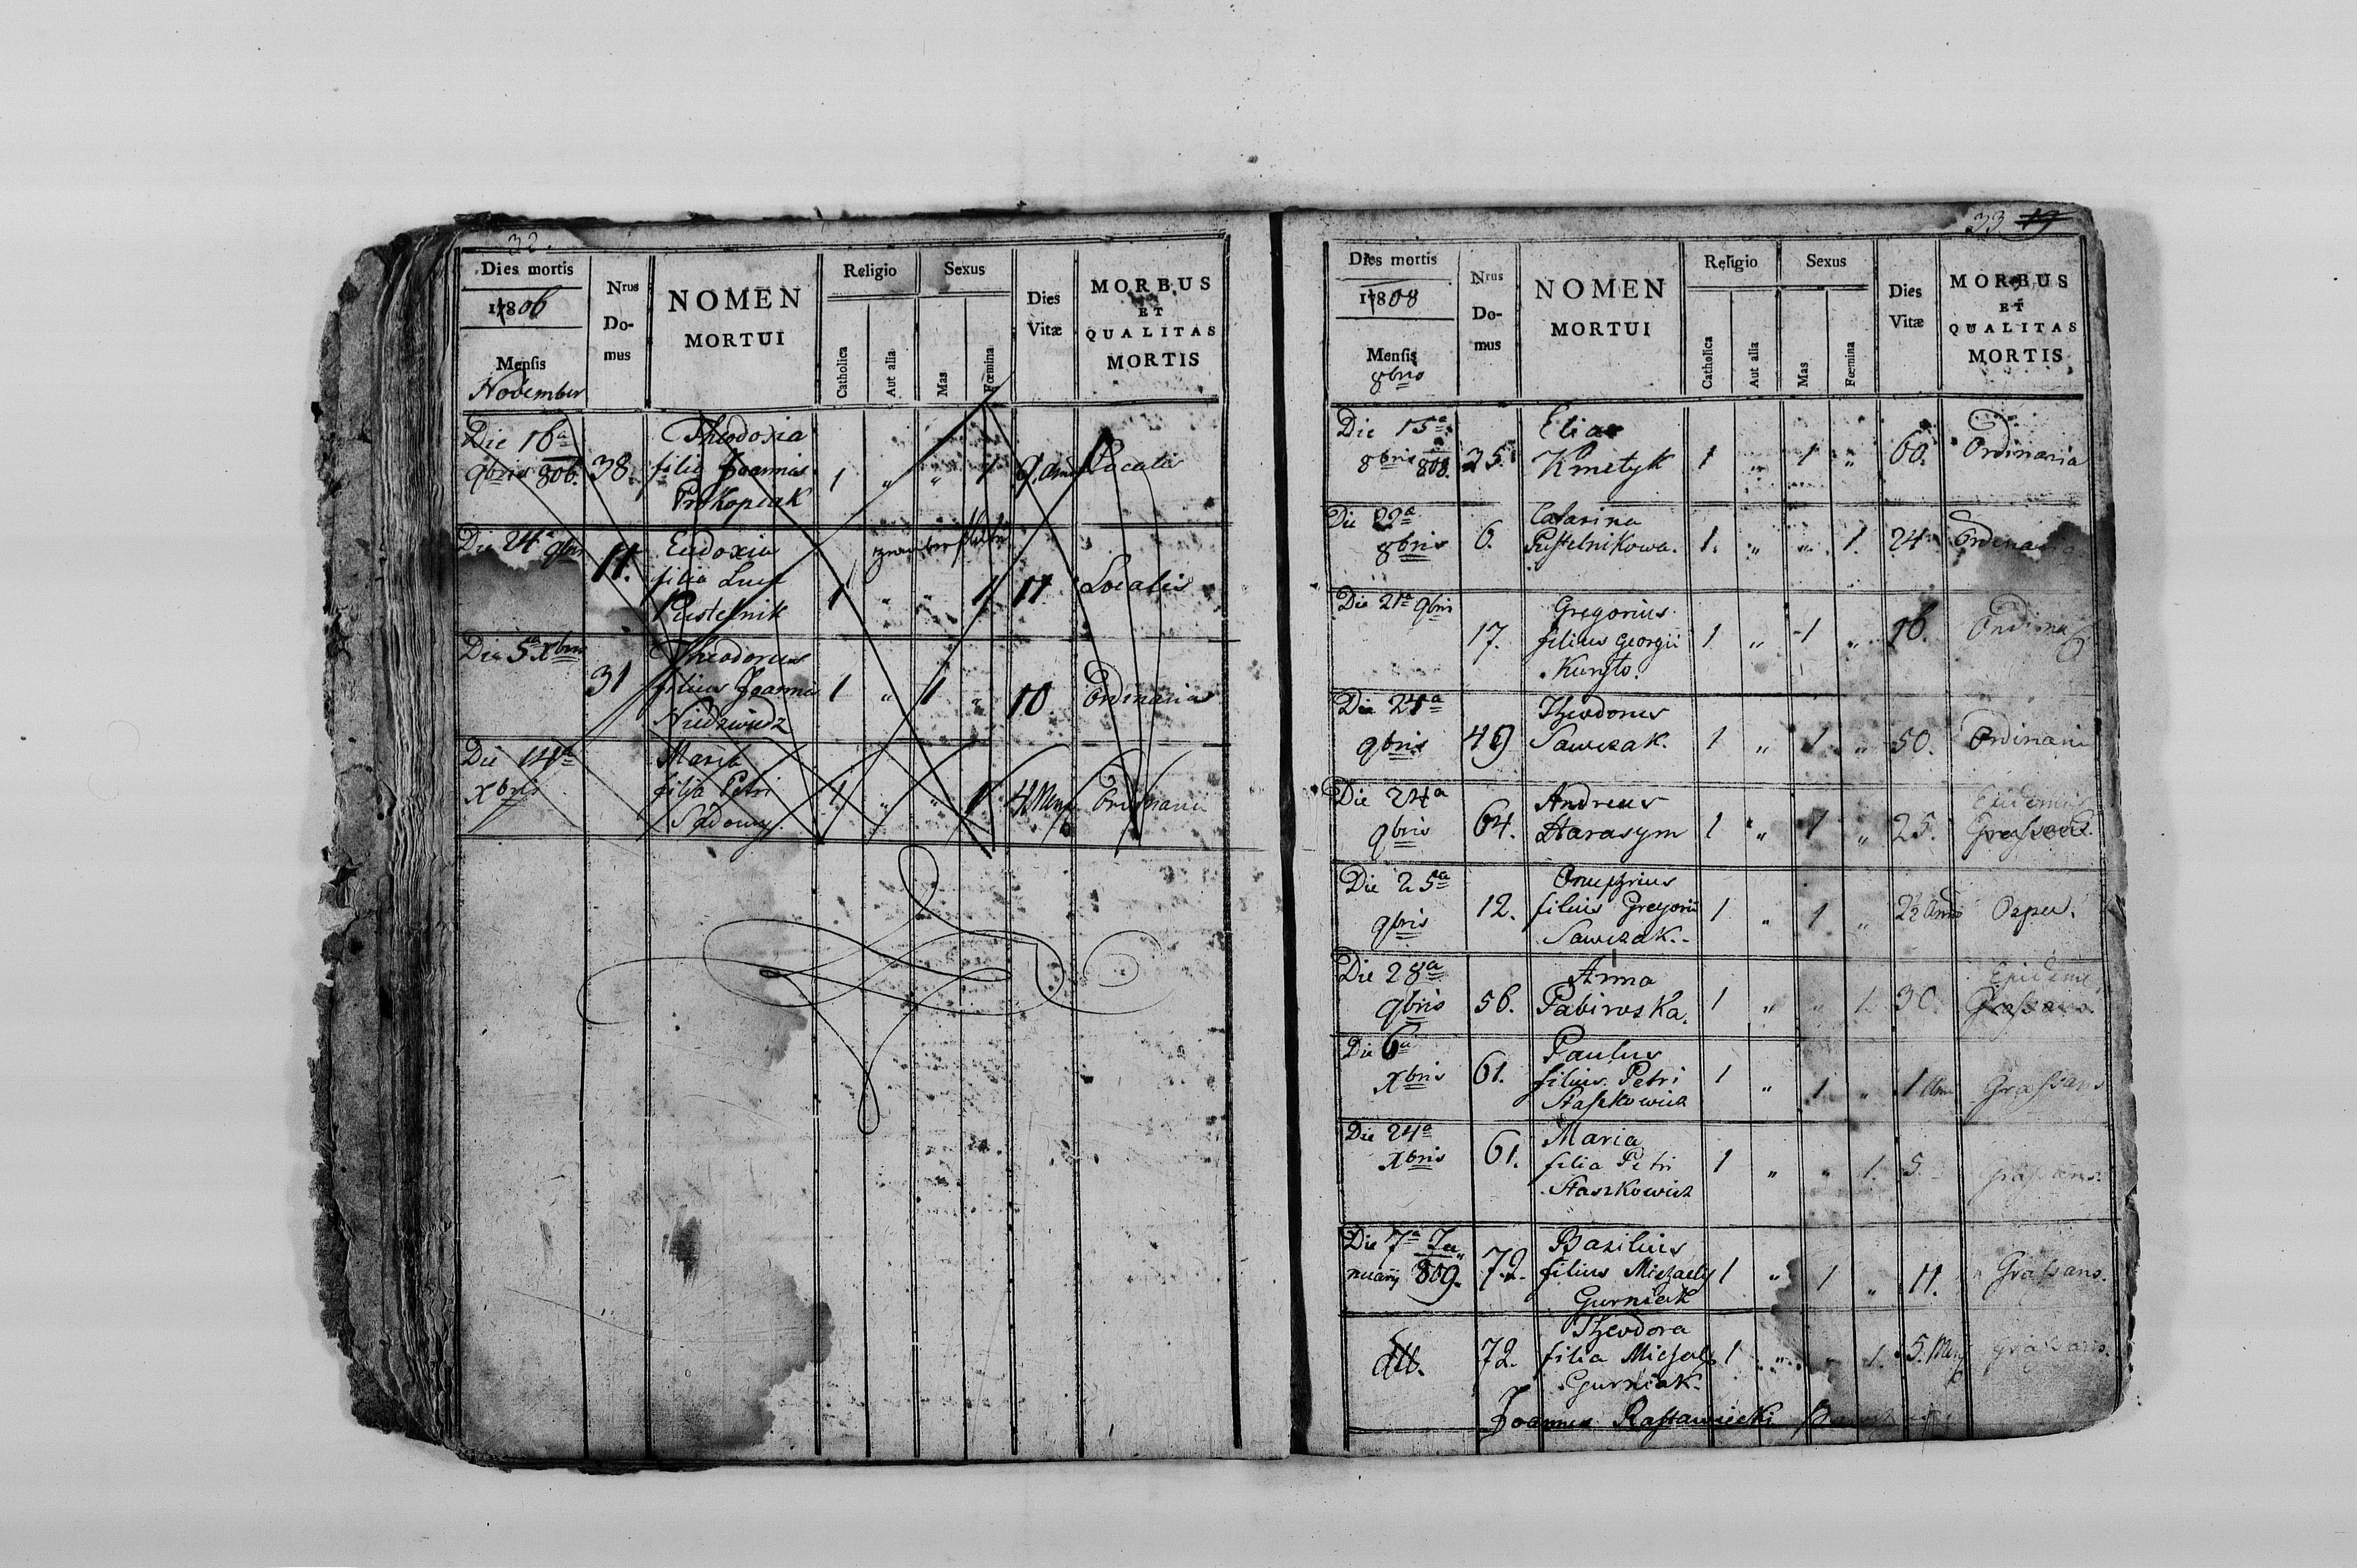 32.
Dies mortis
1806
Mensis
November
Nrus
Do-
mus
NOMEN
MORTUI
Religio
Catholica
Aut alia
Sexus
Mas
Fœmina
Dies
Vitæ
MORBUS
ET
QUALITAS
MORTIS
Die 16a
9bris 806. 38. Theodosia
filia Joannis
Prokopiak 1 " " 1 9. Localis
Die 24a 9bris 11. Eudoxia
filia Lucæ
Pustelnik 1 " " 1 11 Localis
Die 5a Xbris 31 Theodorus
filius Joannis
Niedzwiedz 1 " 1 " 10 Ordinaria
Die 14a
Xbris Maria
filia Petri
Sadowy 1 " " 1 4 Mens Ordinaria
33 19
Dies mortis
1808
Mensis
8bris
Nrus
Do-
mus
NOMEN
MORTUI
Religio
Catholica
Aut alia
Sexus
Mas
Fœmina
Dies
Vitæ
MORBUS
ET
QUALITAS
MORTIS
Die 15a
8bris 808. 25. Elias
Kmetyk 1 " 1 " 60. Ordinaria
Die 22a
8bris 6. Catarina
Pustelnikowa. 1. " " 1. 24 Ordinaria
Die 21a 9bris 17. Gregorius
filius Georgii 1 " 1 " 16. Ordina
Die 24a
9bris 49 Theodorus
Sawczak. 1 " 1 " 50. Ordinaria
Die 24a
9bris 64. Andreas
Harasym 1 " 1 " 25. Epidemia
Grassans.
Die 25a
9bris 12. Onuphrius
filius Gregorii
Sawczak.- 1 " 1 " 2½ Anno Ospa.
Die 28a
9bris 56. Anna
Pabiroska. 1 " " 1. 30. Epidem
Grassans.
Die 6a
Xbris 61. Paulus
filius Petri
Staszkowicz 1 " 1 " 1 Ann Grassans
Die 24a
Xbris 61. Maria
filia Petri
Staszkowicz 1 " " 1. 5. Grassans.
Die 7a Ja"
nuarij 809. 72. Basilius
filius Michaelis
Gurniak 1 " 1 " 11. Grassans.
dtto. 72. Theodora
filia Michaelis
Gurniak. 1 " " 1. 5. Mens grassans.
Joannes Rastawiecki